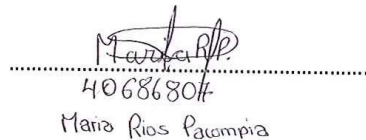 Maria R.P.
40686807
Maria Rios Pacompia